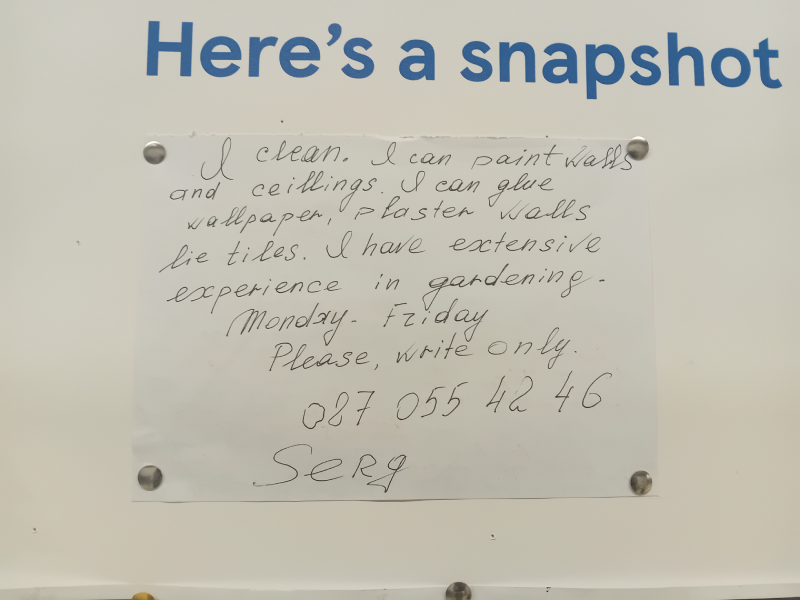 Here's a snapshot
I clean. I can paint walls
and ceillings. I can glue
wallpaper, plaster walls
lie tiles. I have extensive
experience in gardening.
Monday - Friday
Please, write only.
027 055 42 46
Serg